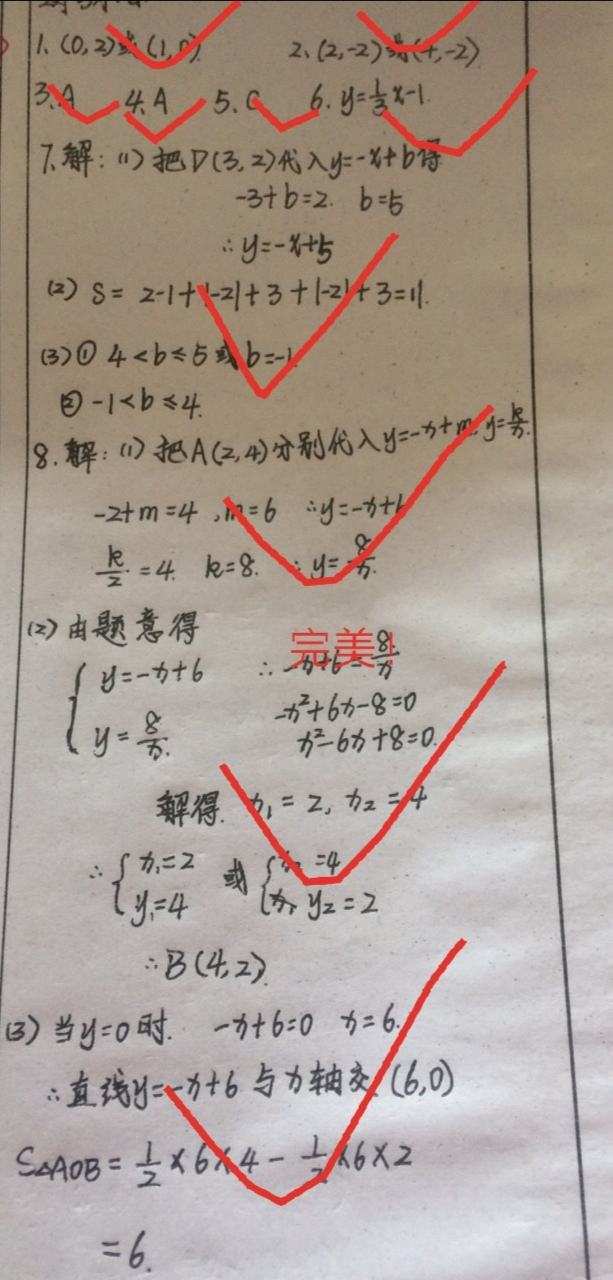 1. (0,2)或(1,0) 2. (2,-2)或(,-2)
3. A 4. A 5. C 6. y=\frac{1}{3}x-1
7. 解：(1) 把D(3,2)代入y=-x+b得
-3+b=2. b=5
∴y=-x+5
(2) S= 2-1+|-2|+3+|-2|+3=11.
(3) ① 4<b≤5或b=-1
② -1<b≤4.
8. 解：(1) 把A(2,4)分别代入y=-x+m, y=\frac{k}{x}.
-2+m=4, m=6 ∴y=-x+6
\frac{k}{2}=4. k=8. ∴y=\frac{8}{x}.
(2) 由题意得
完美!
{ y=-x+6 ∴-x+6=\frac{8}{x}
y=\frac{8}{x}. -x²+6x-8=0
x²-6x+8=0.
解得 x₁=2, x₂=4
∴{ x₁=2 或 { x₂=4
y₁=4 y₂=2
∴B(4,2)
(3) 当y=0时. -x+6=0 x=6.
∴直线y=-x+6与x轴交(6,0)
S△AOB=\frac{1}{2}×6×4-\frac{1}{2}×6×2
=6.